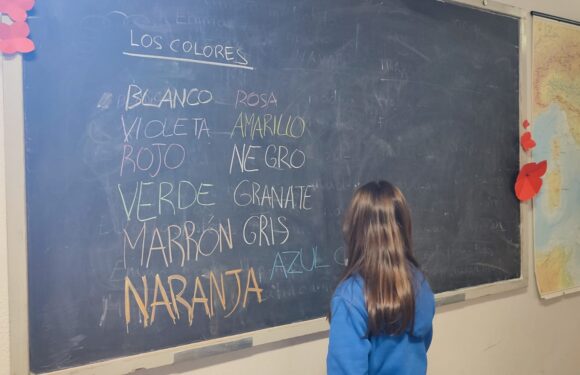 LOS COLORES
BLANCO ROSA
VIOLETA AMARILLO
ROJO NEGRO
VERDE GRANATE
MARRÓN GRIS
NARANJA AZUL